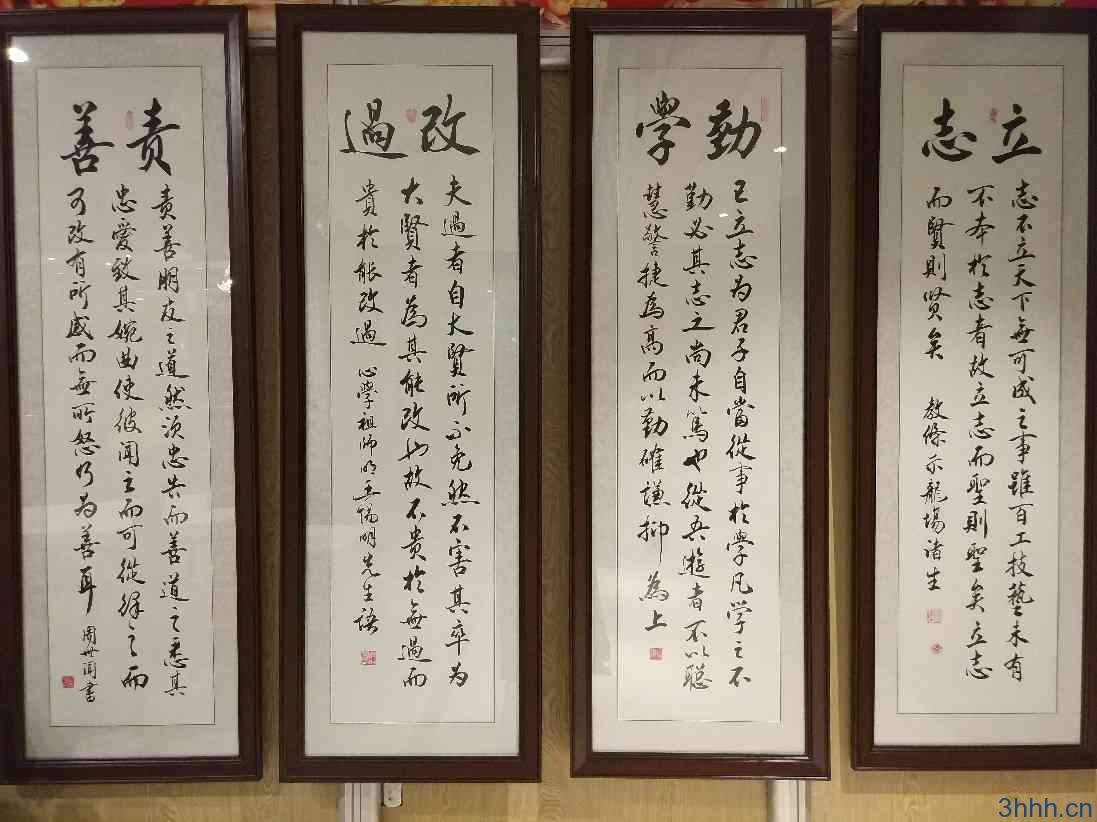 立志
志不立天下無可成之事雖百工技藝未有
不本於志者故立志而聖則聖矣立志
而賢則贤矣 教條示龍場诸生
勤學
已立志为君子自當從事於學凡学之不
勤必其志之尚未篤也從吾遊者不以聪
慧警捷為高而以勤確謙抑為上
改過
夫過者自大賢所不免然不害其卒为
大賢者為其能改也故不贵於無過而
貴於能改過 心學祖师明王陽明先生语
责善
责善朋友之道然须忠告而善道之悉其
忠愛致其婉曲使彼闻之而可從繹之而
可改有所感而無所怒乃为善耳 周世闻書
3hhh.cn